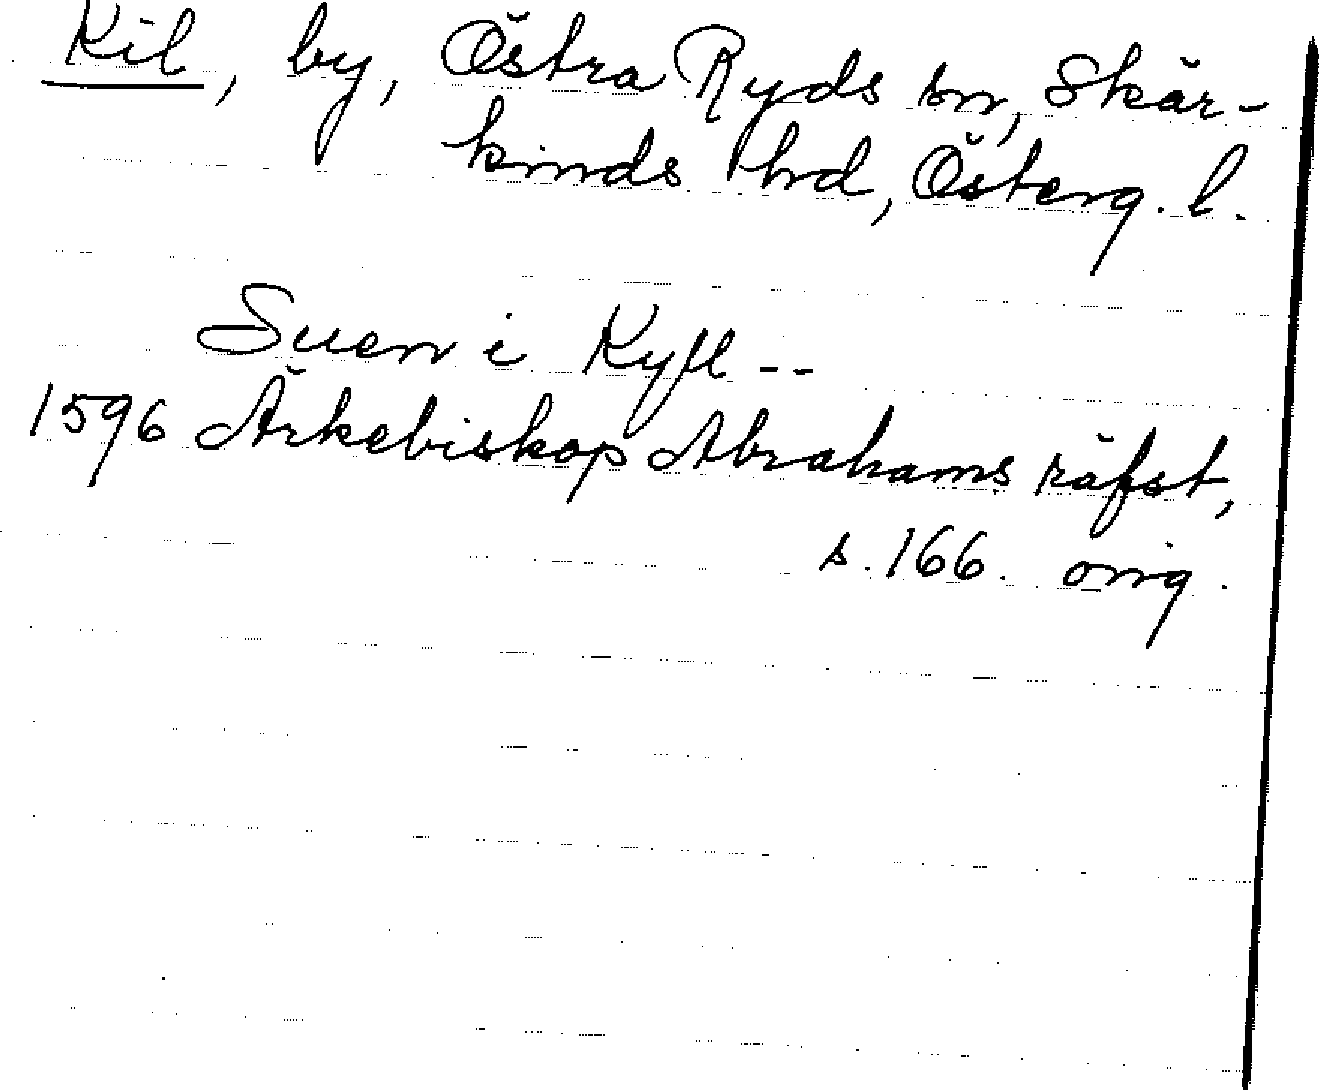 Kil, by, Östra Ryds sn, Skär-
kinds hrd, Österg. l.
Suen i Kyll --
1596 Ärkebiskop Abrahams räfst,
s. 166. orig.